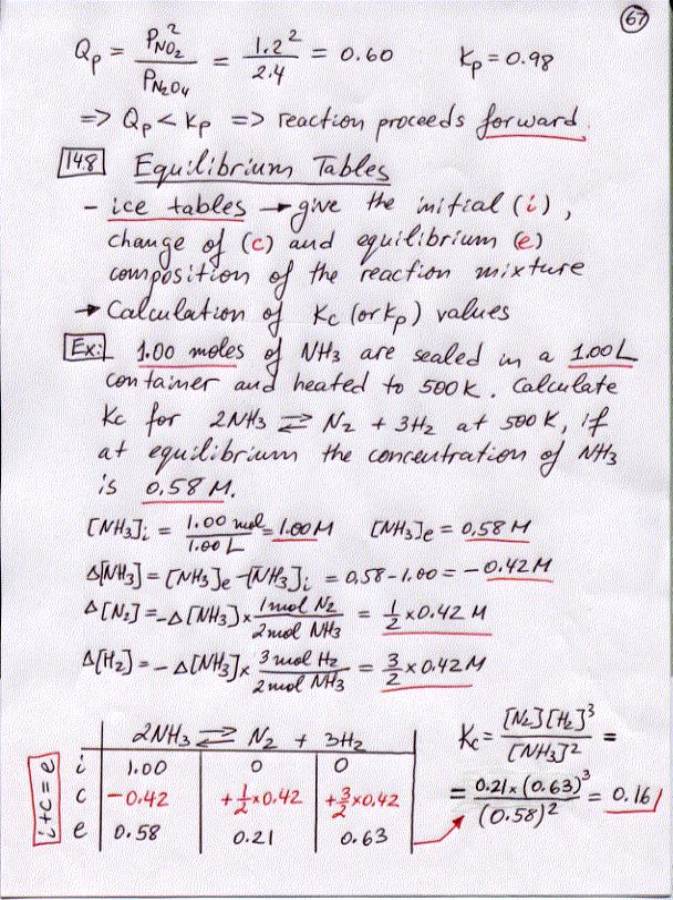 67
Qp = P_NO2² / P_N2O4 = 1.2² / 2.4 = 0.60 Kp = 0.98
=> Qp < Kp => reaction proceeds forward.
14.8 Equilibrium Tables
- ice tables → give the initial (i),
change of (c) and equilibrium (e)
composition of the reaction mixture
→ Calculation of Kc (or Kp) values
Ex: 1.00 moles of NH3 are sealed in a 1.00 L
container and heated to 500 K. Calculate
Kc for 2NH3 ⇄ N2 + 3H2 at 500 K, if
at equilibrium the concentration of NH3
is 0.58 M.
[NH3]i = 1.00 mol / 1.00 L = 1.00 M [NH3]e = 0,58 M
Δ[NH3] = [NH3]e - [NH3]i = 0,58 - 1,00 = -0.42 M
Δ[N2] = -Δ[NH3] × 1 mol N2 / 2 mol NH3 = 1/2 × 0.42 M
Δ[H2] = -Δ[NH3] × 3 mol H2 / 2 mol NH3 = 3/2 × 0.42 M
i+c=e
2NH3 ⇄ N2 + 3H2
i 1.00 0 0
c -0.42 +1/2×0.42 +3/2×0.42
e 0.58 0.21 0.63
Kc = [N2][H2]³ / [NH3]² =
= 0.21 × (0.63)³ / (0.58)² = 0.16